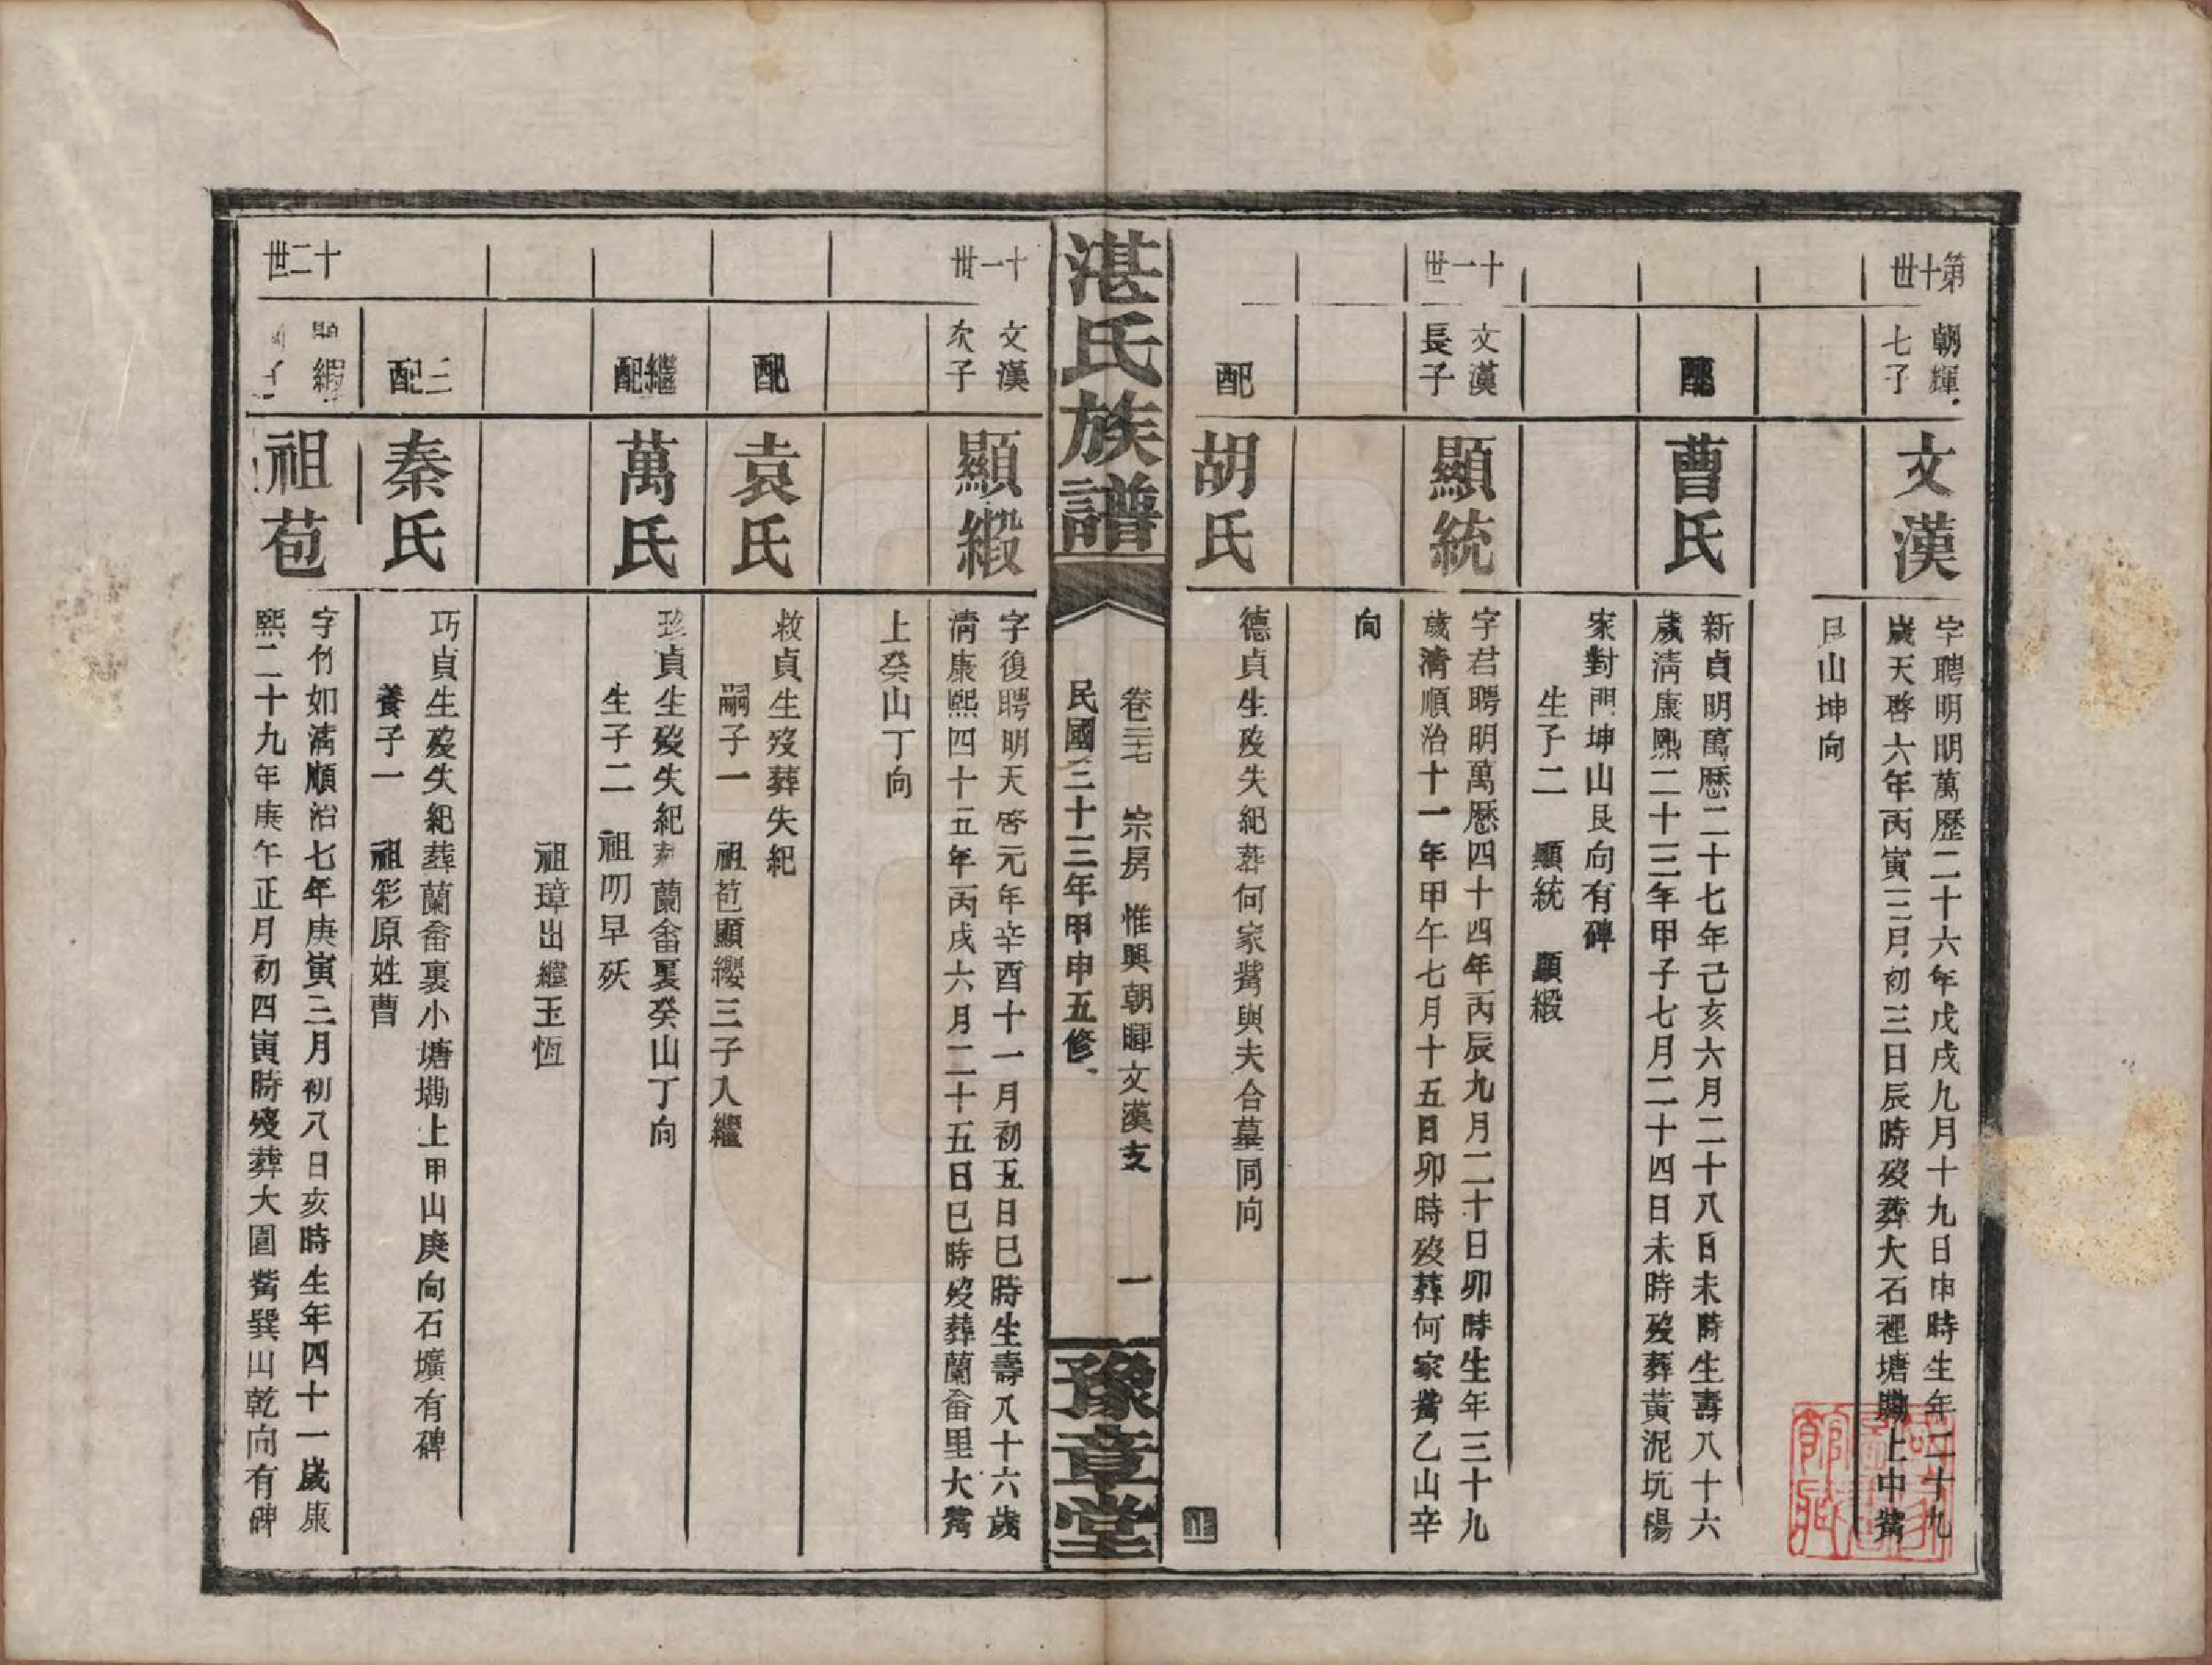 第十世
朝輝七子
文漢
字聘明明萬歷二十六年戊戌九月十九日申時生年二十九
歲天啓六年丙寅三月初三日辰時歿葬大石裡塘塍上中嘴
艮山坤向
配
曹氏
新貞明萬歷二十七年己亥六月二十八日未時生壽八十六
歲清康熙二十三年甲子七月二十四日未時歿葬黃泥坑楊
家對門坤山艮向有碑
生子二 顯統 顯緞
十一世
文漢長子
顯統
字君聘明萬歷四十四年丙辰九月二十日卯時生年三十九
歲清順治十一年甲午七月十五日卯時歿葬何家嘴乙山辛
向
配
胡氏
德貞生歿失紀葬何家嘴與夫合墓同向
湛氏族譜
卷三七 宗房 惟興朝暉文漢支 一
民國三十三年甲申五修
豫章堂
十一世
文漢次子
顯緞
字復聘明天啓元年辛酉十一月初五日巳時生壽八十六歲
清康熙四十五年丙戌六月二十五日巳時歿葬蘭畬里大嘴
上癸山丁向
配
袁氏
救貞生歿葬失紀
嗣子一 祖苞顯纓三子入繼
繼配
萬氏
珍貞生歿失紀葬蘭畬裏癸山丁向
生子二 祖叨早殀
祖璋出繼玉恆
三配
秦氏
巧貞生歿失紀葬蘭畬裏小塘塅上甲山庚向石壙有碑
養子一 祖彩原姓曹
十二世
顯緞子
祖苞
字竹如清順治七年庚寅三月初八日亥時生年四十一歲康
熙二十九年庚午正月初四寅時歿葬大圍嘴巽山乾向有碑